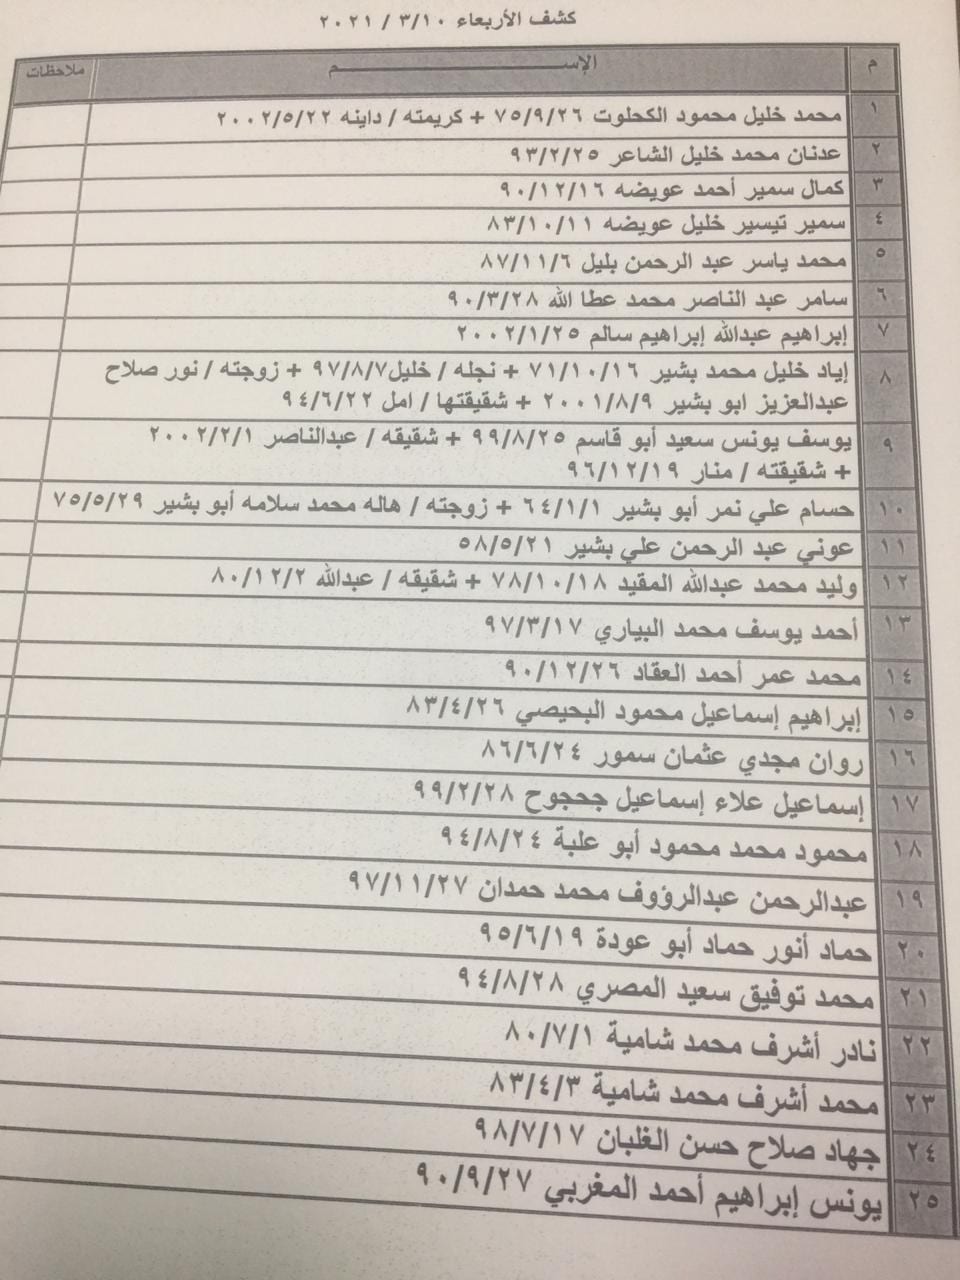 كشف الأربعاء ٣/١٠ / ٢٠٢١
م الإســـــــــــم ملاحظات
١ محمد خليل محمود الكحلوت ٧٥/٩/٢٦ + كريمته / داينه ٢٠٠٢/٥/٢٢
٢ عدنان محمد خليل الشاعر ٩٣/٢/٢٥
٣ كمال سمير أحمد عويضه ٩٠/١٢/١٦
٤ سمير تيسير خليل عويضه ٨٣/١٠/١١
٥ محمد ياسر عبد الرحمن بليل ٨٧/١١/٦
٦ سامر عبد الناصر محمد عطا الله ٩٠/٣/٢٨
٧ إبراهيم عبدالله إبراهيم سالم ٢٠٠٢/١/٢٥
٨ إياد خليل محمد بشير ٧١/١٠/١٦ + نجله / خليل٩٧/٨/٧ + زوجته / نور صلاح
عبدالعزيز ابو بشير ٢٠٠١/٨/٩ + شقيقتها / امل ٩٤/٦/٢٢
٩ يوسف يونس سعيد أبو قاسم ٩٩/٨/٢٥ + شقيقه / عبدالناصر ٢٠٠٢/٢/١
+ شقيقته / منار ٩٦/١٢/١٩
١٠ حسام علي نمر أبو بشير ٦٤/١/١ + زوجته / هاله محمد سلامه أبو بشير ٧٥/٥/٢٩
١١ عوني عبد الرحمن علي بشير ٥٨/٥/٢١
١٢ وليد محمد عبدالله المقيد ٧٨/١٠/١٨ + شقيقه / عبدالله ٨٠/١٢/٢
١٣ أحمد يوسف محمد البياري ٩٧/٣/١٧
١٤ محمد عمر أحمد العقاد ٩٠/١٢/٢٦
١٥ إبراهيم إسماعيل محمود البحيصي ٨٣/٤/٢٦
١٦ روان مجدي عثمان سمور ٨٦/٦/٢٤
١٧ إسماعيل علاء إسماعيل جحجوح ٩٩/٢/٢٨
١٨ محمود محمد محمود أبو علبة ٩٤/٨/٢٤
١٩ عبدالرحمن عبدالرؤوف محمد حمدان ٩٧/١١/٢٧
٢٠ حماد أنور حماد أبو عودة ٩٥/٦/١٩
٢١ محمد توفيق سعيد المصري ٩٤/٨/٢٨
٢٢ نادر أشرف محمد شامية ٨٠/٧/١
٢٣ محمد أشرف محمد شامية ٨٣/٤/٣
٢٤ جهاد صلاح حسن الغلبان ٩٨/٧/١٧
٢٥ يونس إبراهيم أحمد المغربي ٩٠/٩/٢٧